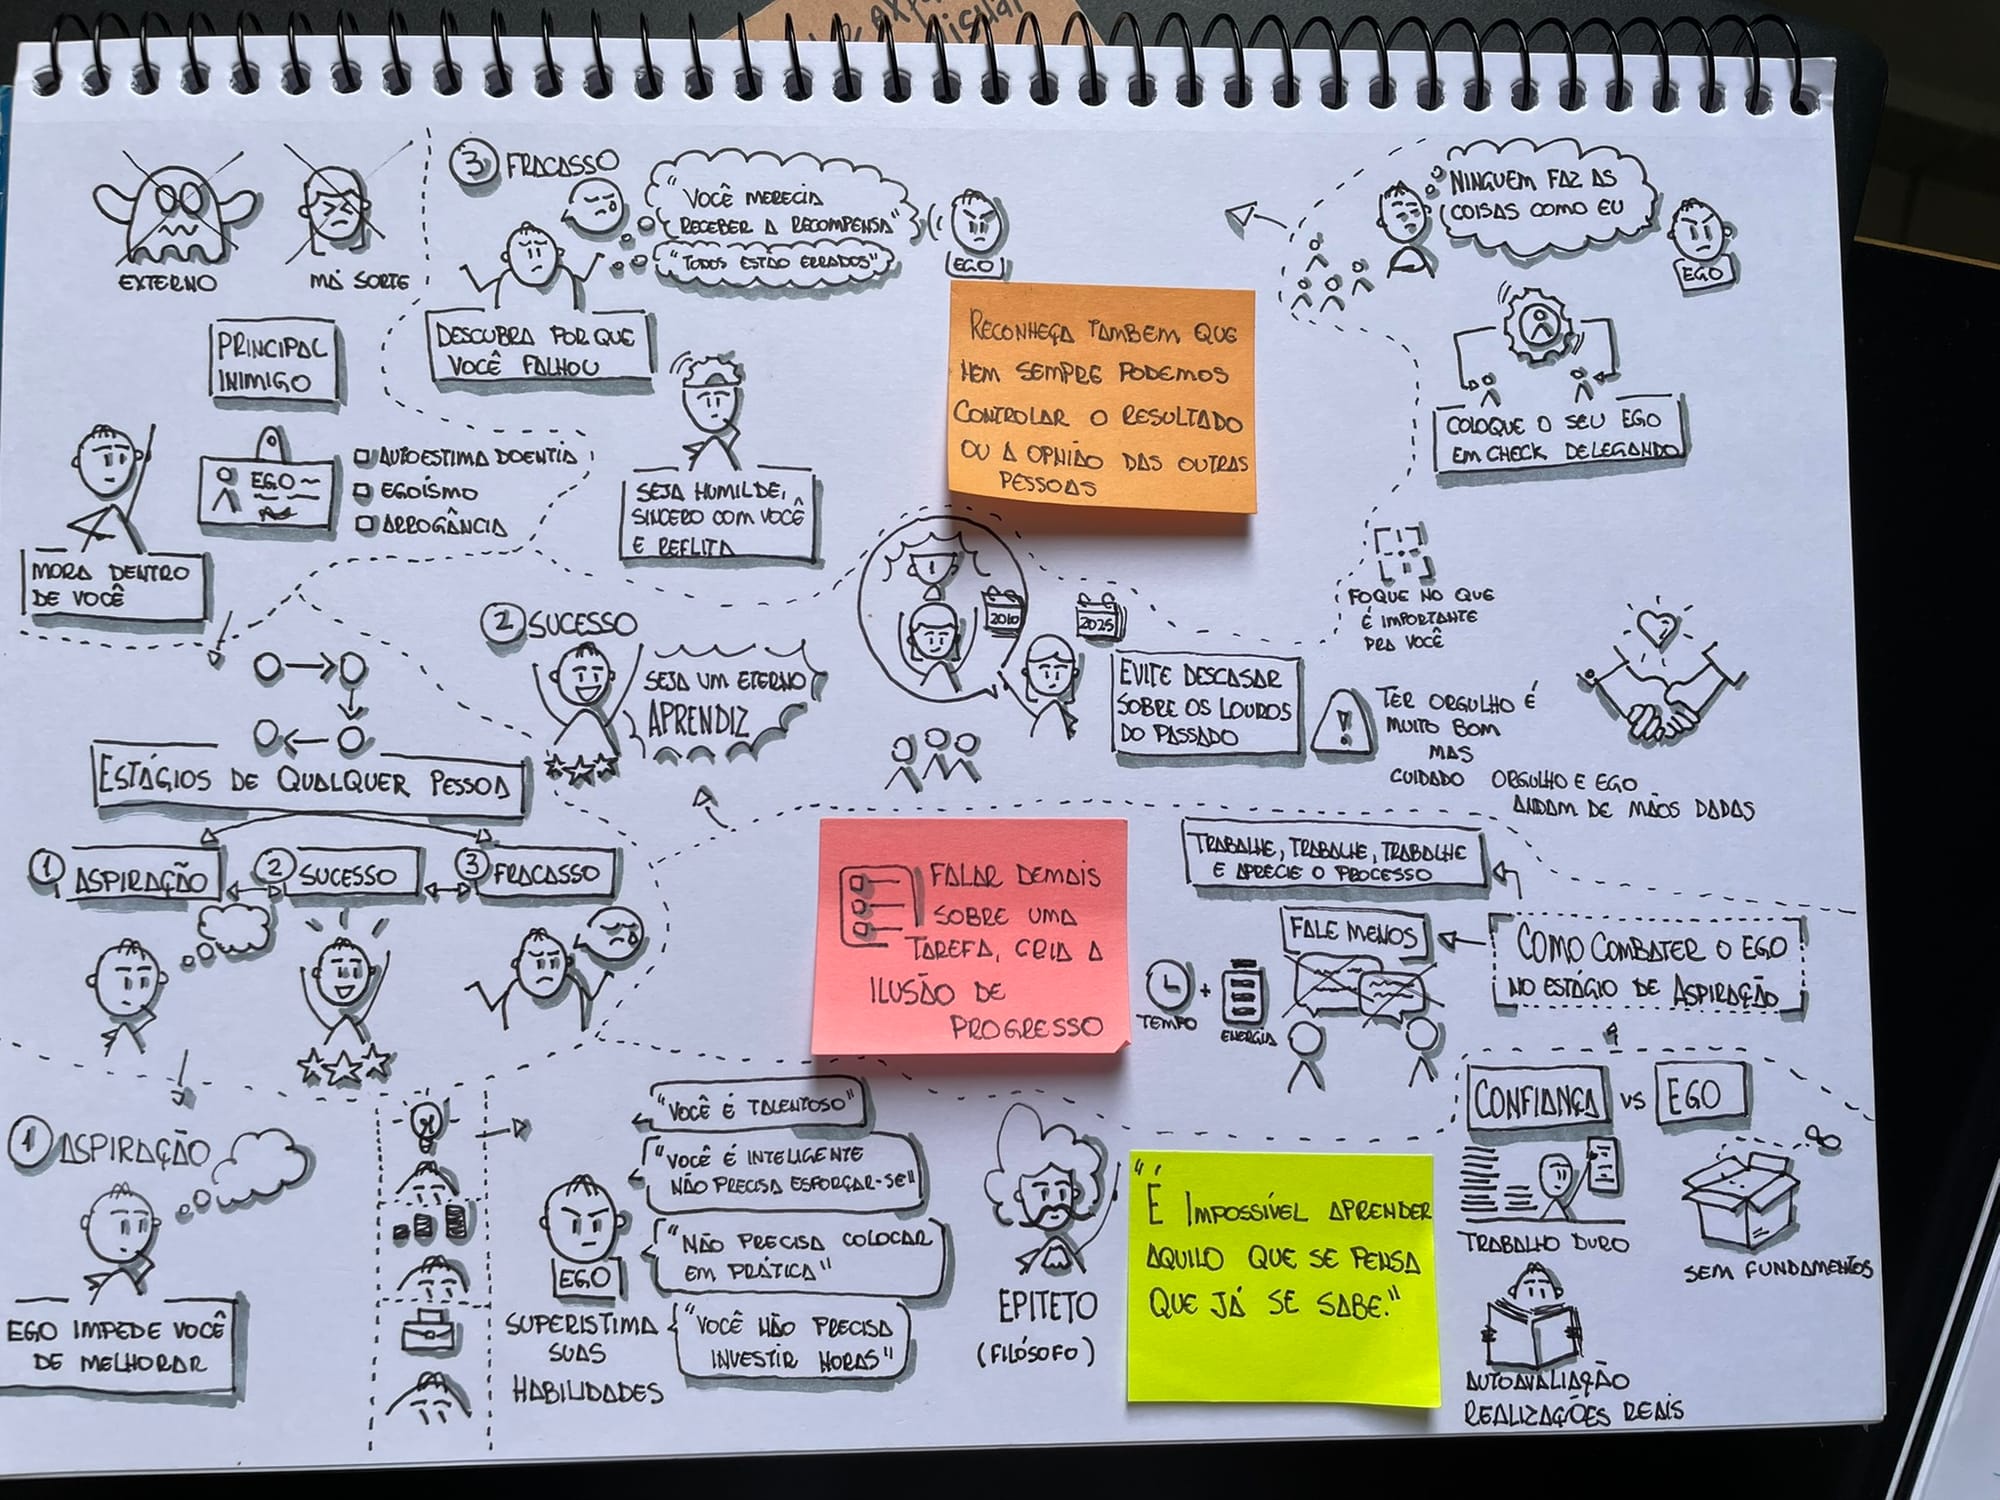 EXTERNO
MÁ SORTE
PRINCIPAL
INIMIGO
EGO
AUTOESTIMA DOENTIA
EGOÍSMO
ARROGÂNCIA
MORA DENTRO
DE VOCÊ
3 FRACASSO
"VOCÊ MERECIA
RECEBER A RECOMPENSA"
"TODOS ESTÃO ERRADOS"
EGO
DESCUBRA POR QUE
VOCÊ FALHOU
SEJA HUMILDE,
SINCERO COM VOCÊ
E REFLITA
RECONHEÇA TAMBEM QUE
NEM SEMPRE PODEMOS
CONTROLAR O RESULTADO
OU A OPNIÃO DAS OUTRAS
PESSOAS
NINGUEM FAZ AS
COISAS COMO EU
EGO
COLOQUE O SEU EGO
EM CHECK DELEGANDO
FOQUE NO QUE
É IMPORTANTE
PRA VOCÊ
2 SUCESSO
SEJA UM ETERNO
APRENDIZ
1
2010
2025
EVITE DESCASAR
SOBRE OS LOUROS
DO PASSADO
!
TER ORGULHO É
MUITO BOM
MAS
CUIDADO ORGULHO E EGO
ANDAM DE MÃOS DADAS
ESTÁGIOS DE QUALQUER PESSOA
1 ASPIRAÇÃO
2 SUCESSO
3 FRACASSO
FALAR DEMAIS
SOBRE UMA
TAREFA, CRIA A
ILUSÃO DE
PROGRESSO
TRABALHE, TRABALHE, TRABALHE
E APRECIE O PROCESSO
FALE MENOS
COMO COMBATER O EGO
NO ESTÁGIO DE ASPIRAÇÃO
TEMPO
+
ENERGIA
1 ASPIRAÇÃO
EGO IMPEDE VOCÊ
DE MELHORAR
EGO
SUPERISTIMA
SUAS
HABILIDADES
"VOCÊ É TALENTOSO"
"VOCÊ É INTELIGENTE
NÃO PRECISA ESFORÇAR-SE"
"NÃO PRECISA COLOCAR
EM PRÁTICA"
"VOCÊ NÃO PRECISA
INVESTIR HORAS"
EPITETO
(FILÓSOFO)
"É IMPOSSÍVEL APRENDER
AQUILO QUE SE PENSA
QUE JÁ SE SABE."
CONFIANÇA VS EGO
TRABALHO DURO
SEM FUNDAMENTOS
AUTOAVALIAÇÃO
REALIZAÇÕES REAIS